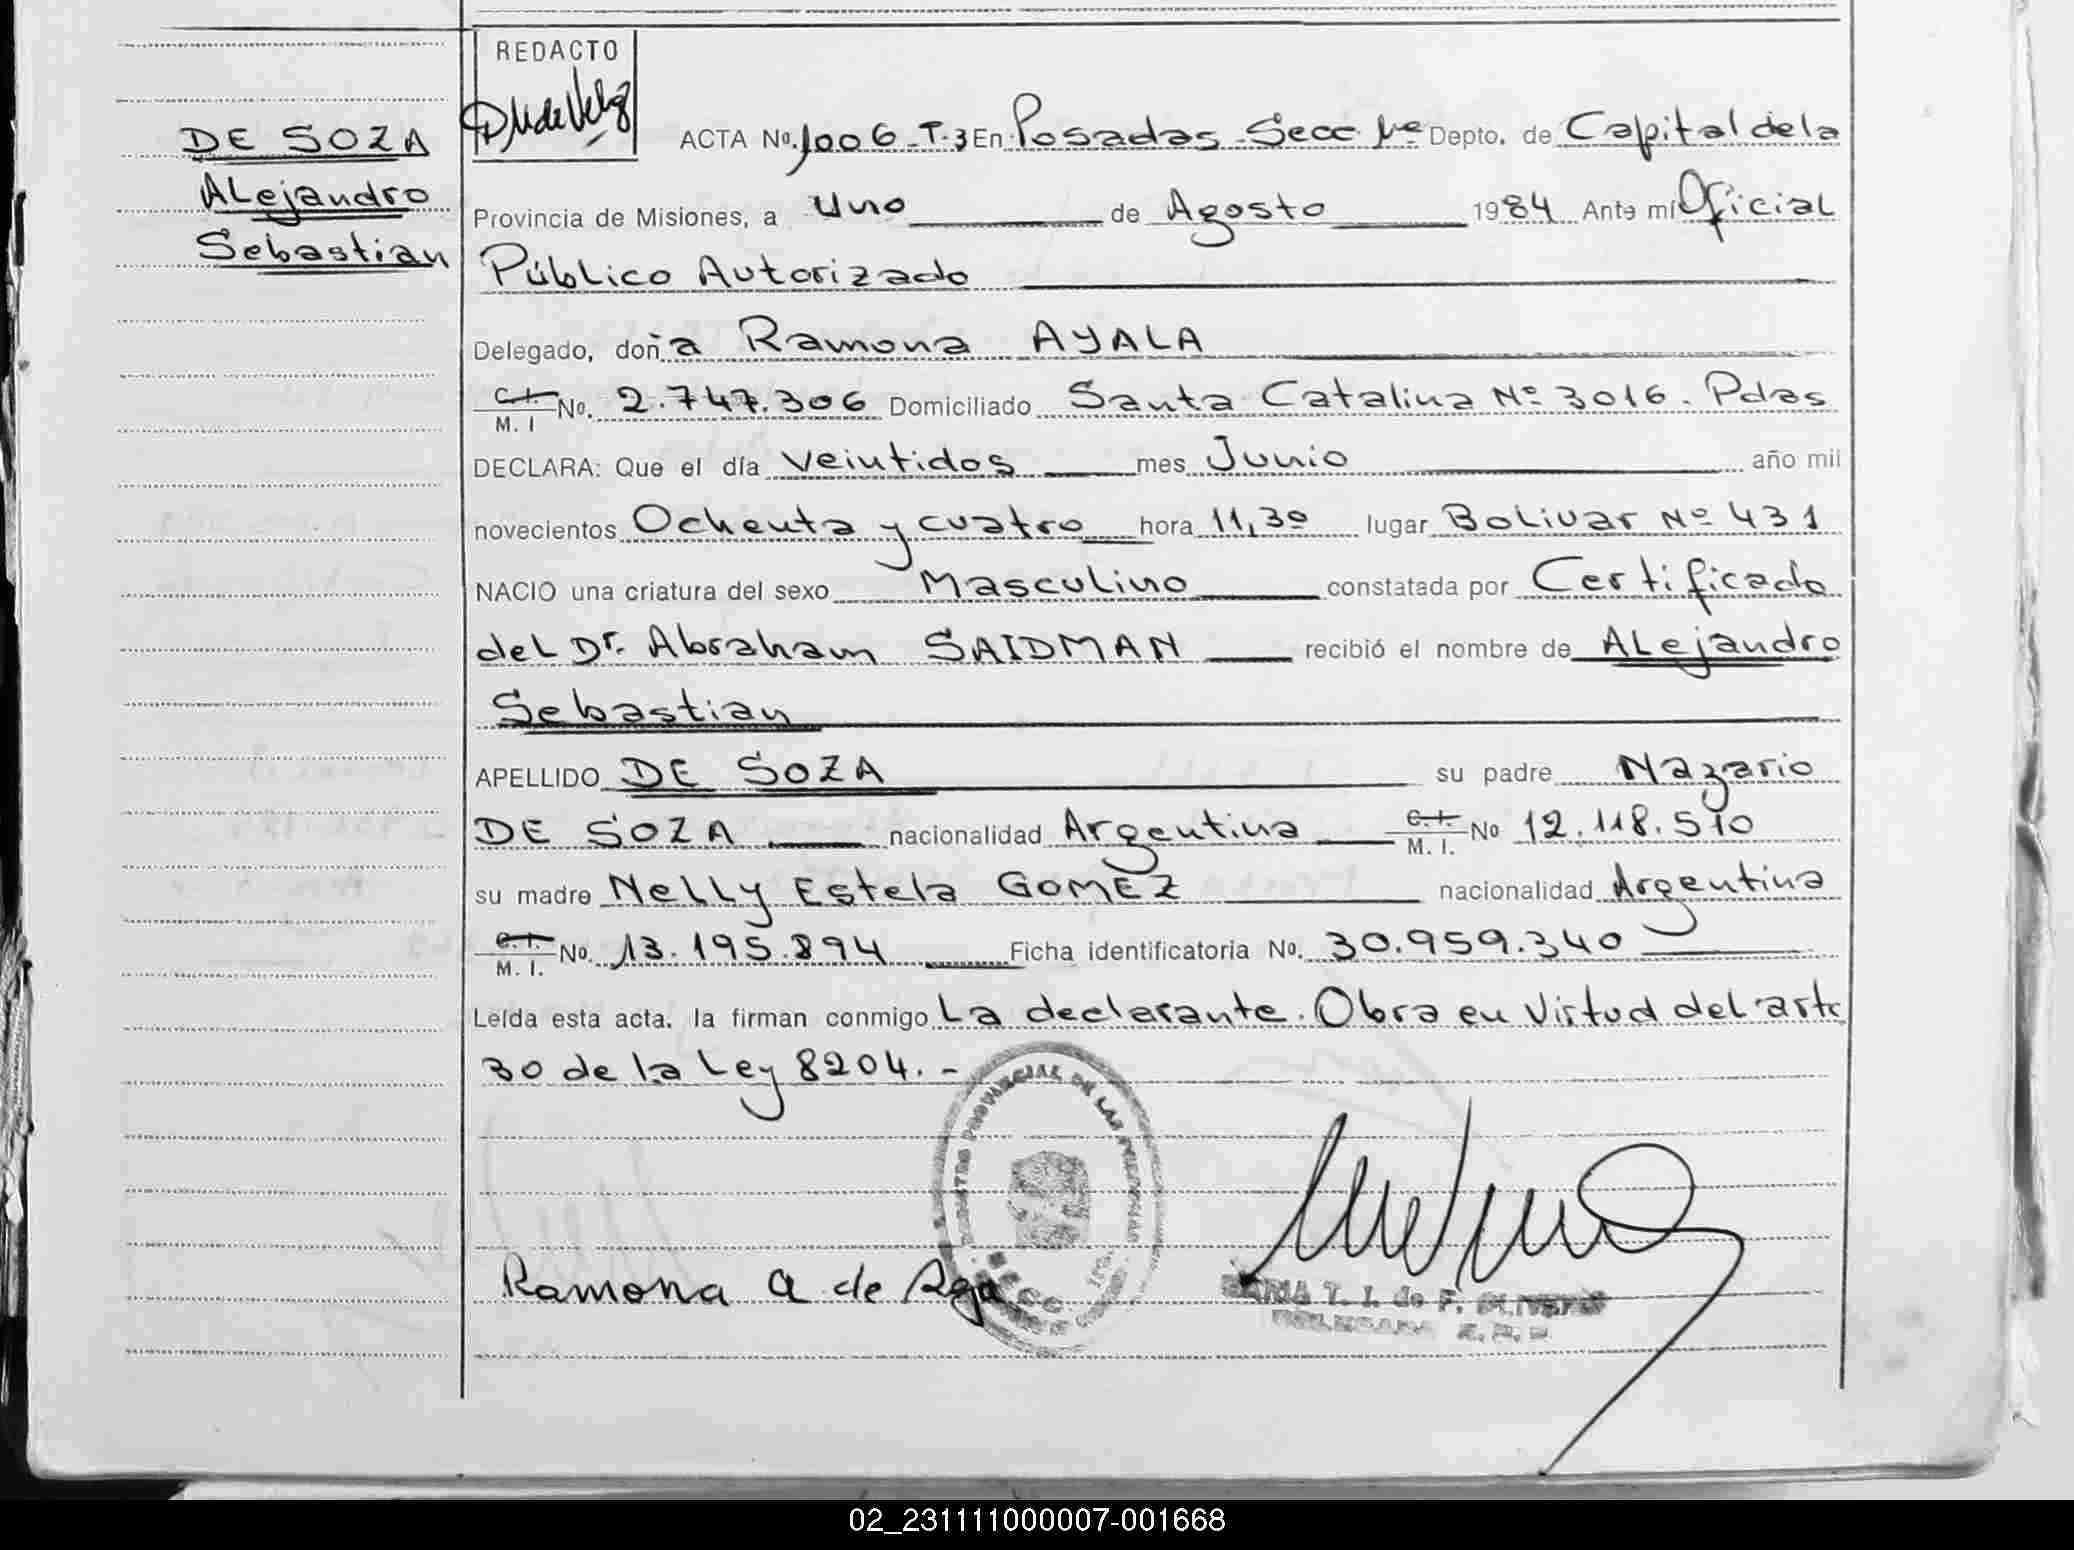 REDACTO
DE SOZA
Alejandro
Sebastian
ACTA No. 1006 T-3 En Posadas Secc 1ra Depto. de Capital de la
Provincia de Misiones, a Uno de Agosto 1984 Ante mí Oficial
Público Autorizado
Delegado, doña Ramona AYALA
C.I. M. I No. 2.747.306 Domiciliado Santa Catalina Nº 3016. Pdas
DECLARA: Que el día veintidos mes Junio año mil
novecientos Ochenta y cuatro hora 11,30 lugar Bolivar Nº 431
NACIO una criatura del sexo Masculino constatada por Certificado
del Dr. Abraham SAIDMAN recibió el nombre de Alejandro
Sebastian
APELLIDO DE SOZA su padre Nazario
DE SOZA nacionalidad Argentina C.I. M. I. No 12.118.510
su madre Nelly Estela GOMEZ nacionalidad Argentina
C.I. M. I. No. 13.195.894 Ficha identificatoria No. 30.959.340
Leída esta acta, la firman conmigo La declarante. Obra en Virtud del artc
30 de la Ley 8204.-
REGISTRO PROVINCIAL DE LAS PERSONAS
SECC
Ramona A de
T. I. de F.
02_231111000007-001668